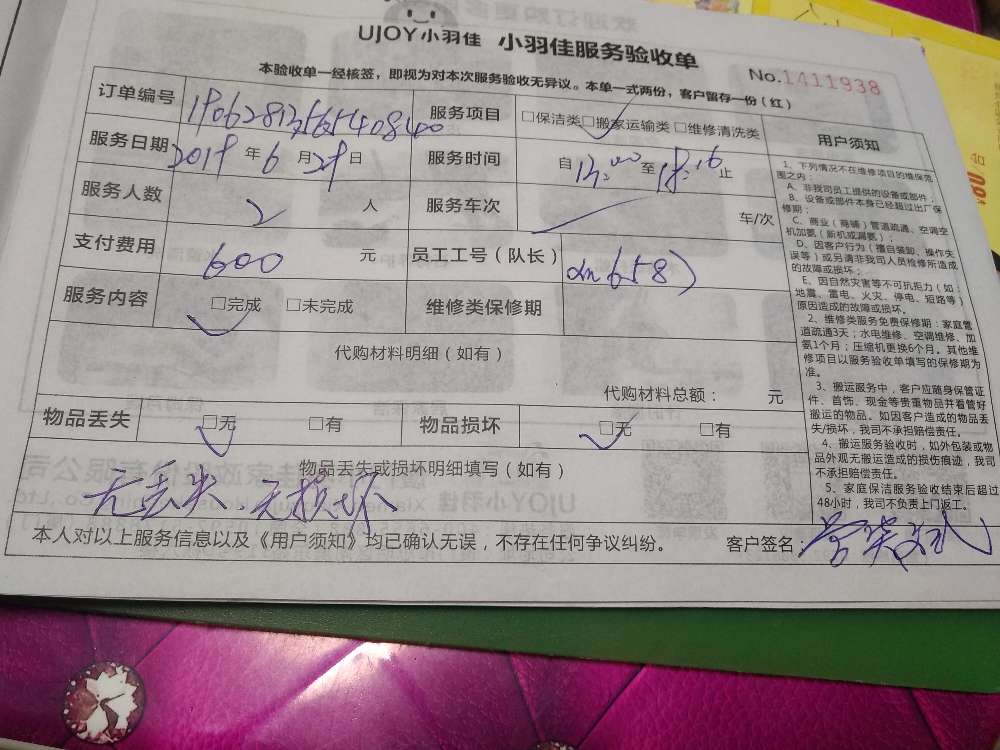 UJOY小羽佳 小羽佳服务验收单
No.1411938
本验收单一经核签，即视为对本次服务验收无异议。本单一式两份，客户留存一份（红）
订单编号
服务项目 □保洁类 □搬家运输类 □维修清洗类
用户须知
服务日期 2019 年 6 月 29 日
服务时间 自 13:00 至 18:16 止
服务人数 2 人
服务车次 车/次
支付费用 600 元
员工工号（队长）
服务内容 □完成 □未完成
维修类保修期
代购材料明细（如有）
代购材料总额： 元
物品丢失 □无 □有
物品损坏 □无 □有
物品丢失或损坏明细填写（如有）
无丢失、无损坏
1、下列情况不在维修项目的维保范
围之内：
A、非我司员工提供的设备或部件；
B、设备或部件本身已经超过出厂保
修期；
C、商业（商铺）管道疏通、空调空
机加氨（新机或漏氨）；
D、因客户行为（擅自装卸、操作失
误等）或另请非我司人员检修所造成
的故障或损坏；
E、因自然灾害等不可抗拒力（如：
地震、雷电、火灾、停电、短路等）
原因造成的故障或损坏。
2、维修类服务免费保修期：家庭管
道疏通3天；水电维修、空调维修、加
氨1个月；压缩机更换6个月。其他维
修项目以服务验收单填写的保修期为
准。
3、搬运服务中，客户应随身保管证
件、首饰、现金等贵重物品并看管好
搬运的物品。如因客户造成的物品丢
失/损坏，我司不承担赔偿责任。
4、搬运服务验收时，如外包装或物
品外观无搬运造成的损伤痕迹，我司
不承担赔偿责任。
5、家庭保洁服务验收结束后超过
48小时，我司不负责上门返工。
本人对以上服务信息以及《用户须知》均已确认无误，不存在任何争议纠纷。
客户签名：